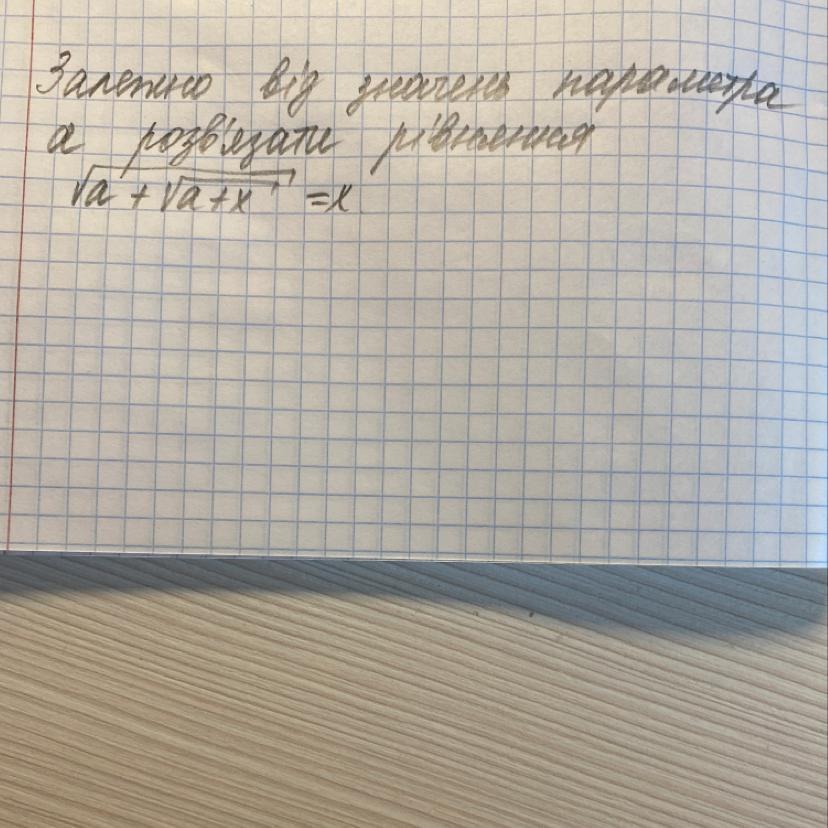 Залежно від значень параметра
a розв'язати рівняння
√(a + √(a+x)) = x.